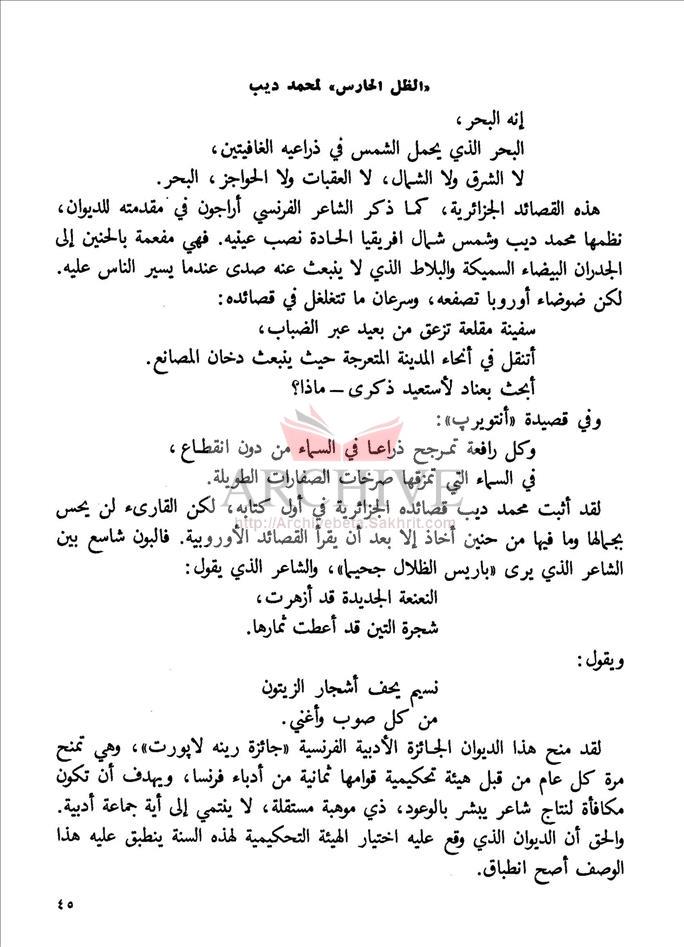 «الظل الحارس» لمحمد ديب
إنه البحر،
البحر الذي يحمل الشمس في ذراعيه الغافيتين،
لا الشرق ولا الشمال، لا العقبات ولا الحواجز، البحر.
هذه القصائد الجزائرية، كما ذكر الشاعر الفرنسي أراجون في مقدمته للديوان،
نظمها محمد ديب وشمس شمال افريقيا الحادة نصب عينيه. فهي مفعمة بالحنين إلى
الجدران البيضاء السميكة والبلاط الذي لا ينبعث عنه صدى عندما يسير الناس عليه.
لكن ضوضاء أوروبا تصفعه، وسرعان ما تتغلغل في قصائده:
سفينة مقلعة تزعق من بعيد عبر الضباب،
أتنقل في أنحاء المدينة المتعرجة حيث ينبعث دخان المصانع.
أبحث بعناد لأستعيد ذكرى – ماذا؟
وفي قصيدة «أنتويرپ»:
وكل رافعة تمرجح ذراعا في السماء من دون انقطاع،
في السماء التي تمزقها صرخات الصفارات الطويلة.
ARCHIVE
لقد أثبت محمد ديب قصائده الجزائرية في أول كتابه، لكن القارىء لن يحس
http://Archivebeta.Sakhrit.com
بجمالها وما فيها من حنين أخاذ إلا بعد أن يقرأ القصائد الأوروبية. فالبون شاسع بين
الشاعر الذي يرى «باريس الظلال جحيما»، والشاعر الذي يقول:
النعنعة الجديدة قد أزهرت،
شجرة التين قد أعطت ثمارها.
ويقول:
نسيم يحف أشجار الزيتون
من كل صوب وأغني.
لقد منح هذا الديوان الجائزة الأدبية الفرنسية «جائزة رينه لاپورت»، وهي تمنح
مرة كل عام من قبل هيئة تحكيمية قوامها ثمانية من أدباء فرنسا، ويهدف أن تكون
مكافأة لنتاج شاعر يبشر بالوعود، ذي موهبة مستقلة، لا ينتمي إلى أية جماعة أدبية.
والحق أن الديوان الذي وقع عليه اختيار الهيئة التحكيمية لهذه السنة ينطبق عليه هذا
الوصف أصح انطباق.
٤٥